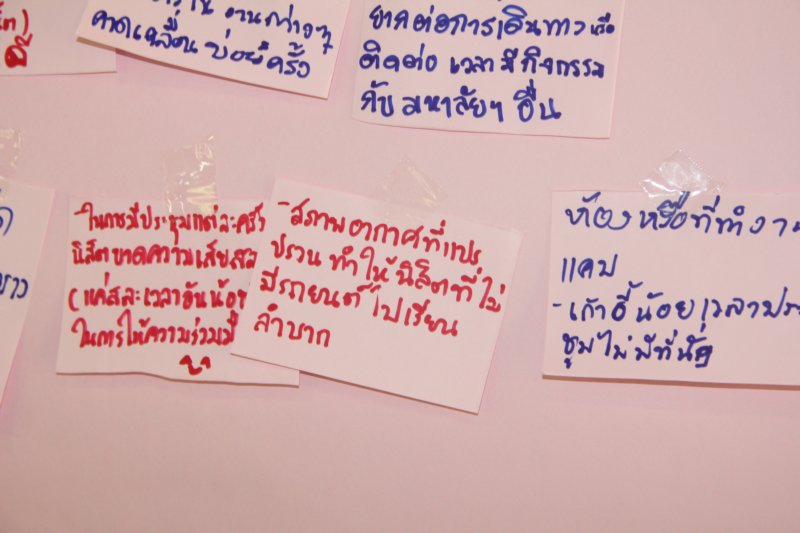 คาดเคลื่อน บ่อยครั้ง
ยากต่อการเดินทางหรือ
ติดต่อ เวลามีกิจกรรม
กับ มหาลัยฯ อื่น
-ในการมีประชุมแต่ละครั้ง
นิสิตขาดความเสียสละ
(แค่สละเวลาอันน้อย
ในการให้ความร่วมมื
-สภาพอากาศที่แปร
ปรวน ทำให้นิสิตที่ไม่
มีรถยนต์ ไปเรียน
ลำบาก
ห้องหรือที่ทำงาน
แคบ
-เก้าอี้น้อย เวลาประ
ชุมไม่มีที่นั่ง